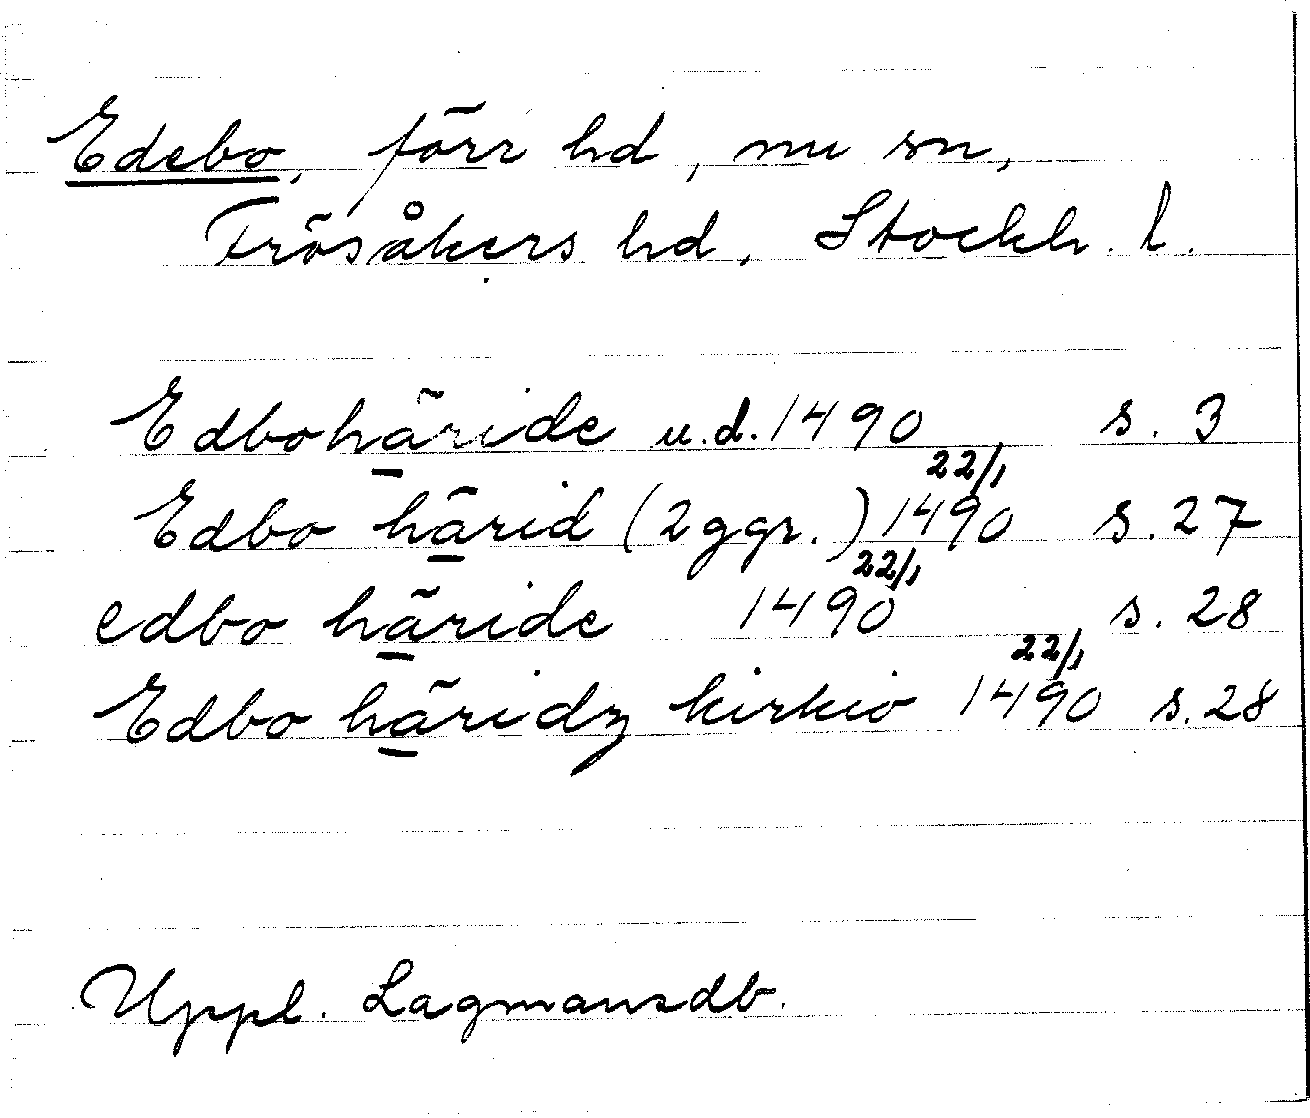 Edebo, förr hd, nu sn,
Frösåkers hd, Stockh. l.
Edbohäride u.d. 1490 s. 3
Edbo härid (2 ggr.) 22/1 1490 s. 27
edbo häride 22/1 1490 s. 28
Edbo häridz kirkio 22/1 1490 s. 28
Uppl. Lagmansdb.